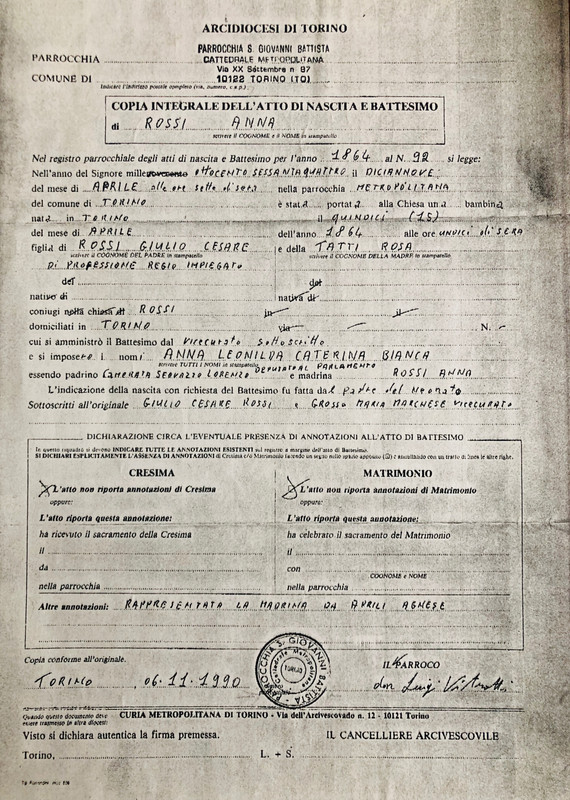 ARCIDIOCESI DI TORINO
PARROCCHIA PARROCCHIA S. GIOVANNI BATTISTA
CATTEDRALE METROPOLITANA
COMUNE DI Via XX Settembre n 87
10122 TORINO (TO)
Indicare l'indirizzo postale completo (via, numero, c.a.p.)
COPIA INTEGRALE DELL'ATTO DI NASCITA E BATTESIMO
di ROSSI ANNA
scrivere il COGNOME e il NOME in stampatello
Nel registro parrocchiale degli atti di nascita e Battesimo per l'anno 1864 al N. 92 si legge:
Nell'anno del Signore millenovecento OTTOCENTO SESSANTAQUATTRO il DICIANNOVE
del mese di APRILE alle ore sette di sera nella parrocchia METROPOLITANA
del comune di TORINO è stata portata alla Chiesa una bambina
nata in TORINO il QUINDICI (15)
del mese di APRILE dell'anno 1864 alle ore UNDICI di SERA
figlia di ROSSI GIULIO CESARE e della TATTI ROSA
scrivere il COGNOME DEL PADRE in stampatello scrivere il COGNOME DELLA MADRE in stampatello
DI PROFESSIONE REGIO IMPIEGATO
del del
nativo di nativa di
coniugi nella chiesa di ROSSI in il
domiciliati in TORINO via N. -
cui si amministrò il Battesimo dal Vicecurato sottoscritto
e si imposero i nomi ANNA LEONILDA CATERINA BIANCA
scrivere TUTTI I NOMI in stampatello
DEPUTATO AL PARLAMENTO
essendo padrino CAMERATA SCOVAZZO LORENZO e madrina ROSSI ANNA
L'indicazione della nascita con richiesta del Battesimo fu fatta dal padre del Neonato
Sottoscritti all'originale GIULIO CESARE ROSSI e GROSSO MARIA MARCHESE VICECURATO
DICHIARAZIONE CIRCA L'EVENTUALE PRESENZA DI ANNOTAZIONI ALL'ATTO DI BATTESIMO
In questo riquadro si devono INDICARE TUTTE LE ANNOTAZIONI ESISTENTI sul registro a margine dell'atto di Battesimo.
SI DICHIARI ESPLICITAMENTE L'ASSENZA DI ANNOTAZIONI di Cresima e/o Matrimonio facendo un segno nello spazio apposito e annullando con un tratto di linea le altre righe.
CRESIMA MATRIMONIO
L'atto non riporta annotazioni di Cresima L'atto non riporta annotazioni di Matrimonio
oppure: oppure:
L'atto riporta questa annotazione: L'atto riporta questa annotazione:
ha ricevuto il sacramento della Cresima ha celebrato il sacramento del Matrimonio
il il
da con
COGNOME e NOME
nella parrocchia nella parrocchia
Altre annotazioni: RAPPRESENTATA LA MADRINA DA APRILI AGNESE
Copia conforme all'originale. IL PARROCO
TORINO 06.11.1990 don Luigi
PARROCCHIA S. GIOVANNI BATTISTA
Cattedrale Metropolitana
TORINO
Quando questo documento deve essere trasmesso in altra diocesi:
CURIA METROPOLITANA DI TORINO - Via dell'Arcivescovado n. 12 - 10121 Torino
Visto si dichiara autentica la firma premessa. IL CANCELLIERE ARCIVESCOVILE
Torino, L. + S.